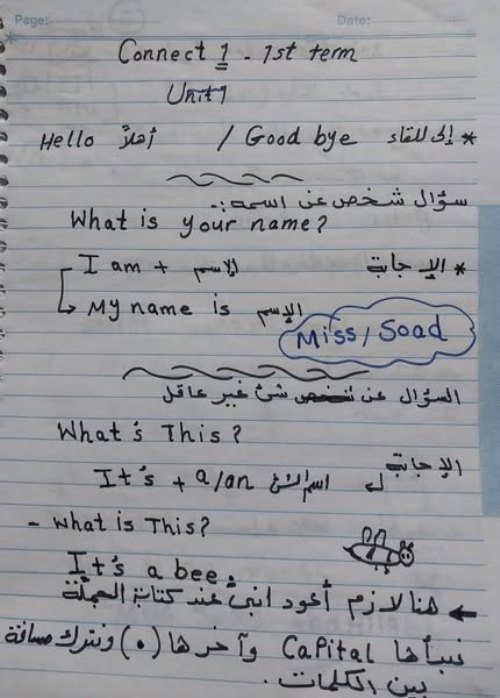 Page: Date:
Connect 1 - 1st term
Unit 1
Hello أهلاً / Good bye إلى اللقاء *
سؤال شخص عن اسمه:-
What is your name?
* الإجابة
I am + الإسم
My name is الإسم
Miss/Soad
السؤال عن شئ غير عاقل
What's This?
الإجابة
It's + a/an اسم الشئ
- What is This?
It's a bee.
هنا لازم أعود ابنى عند كتابة الجملة
نبدأها Capital وآخرها (.) ونترك مسافة
بين الكلمات.